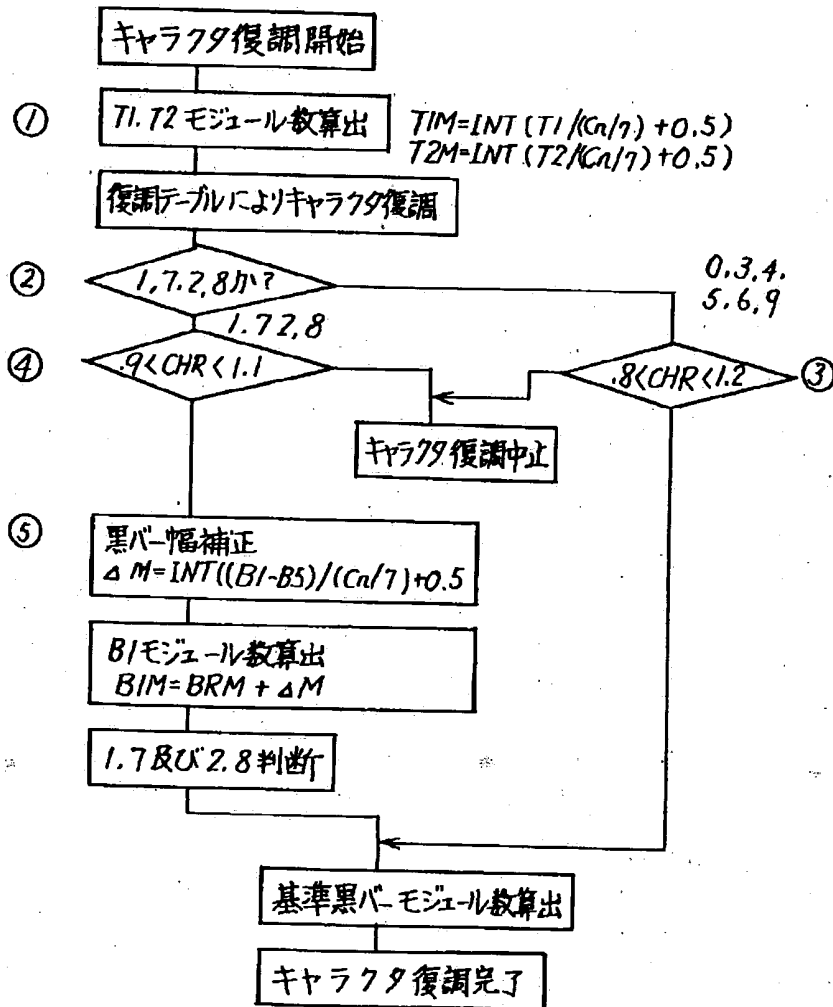 キャラクタ復調開始
①
T1.T2モジュール数算出
T1M=INT(T1/(Cn/7)+0.5)
T2M=INT(T2/(Cn/7)+0.5)
復調テーブルによりキャラクタ復調
②
1,7.2,8か?
0.3.4.
5.6.9
1.72,8
④
.9<CHR<1.1
.8<CHR<1.2
③
キャラクタ復調中止
⑤
黒バー幅補正
ΔM=INT((B1-BS)/(Cn/7)+0.5
B1モジュール数算出
B1M=BRM+ΔM
1.7及び2.8判断
基準黒バーモジュール数算出
キャラクタ復調完了